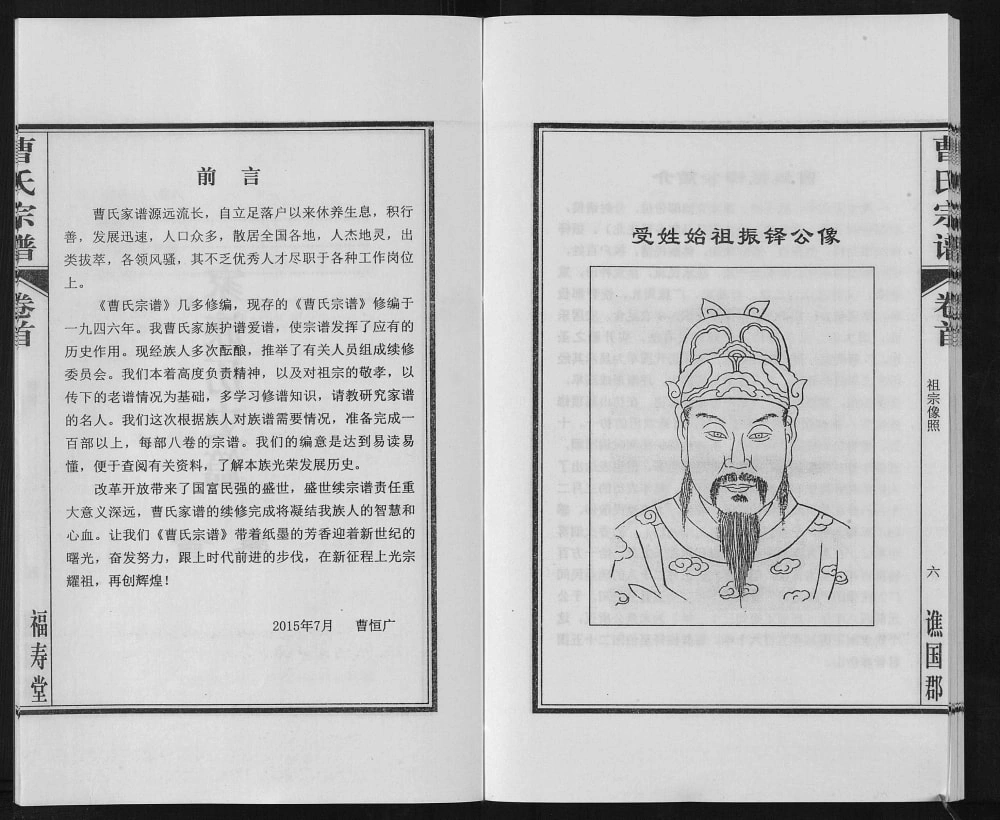 曹氏宗谱
卷首
福寿堂
前 言
曹氏家谱源远流长，自立足落户以来休养生息，积行
善，发展迅速，人口众多，散居全国各地，人杰地灵，出
类拔萃，各领风骚，其不乏优秀人才尽职于各种工作岗位
上。
《曹氏宗谱》几多修编，现在的《曹氏宗谱》修编于
一九四六年。我曹氏家族护谱爱谱，使宗谱发挥了应有的
历史作用。现经族人多次酝酿，推举了有关人员组成续修
委员会。我们本着高度负责精神，以及对祖宗的敬孝，以
传下的老谱情况为基础，多学习修谱知识，请教研究家谱
的名人。我们这次根据族人对族谱需要情况，准备完成一
百部以上，每部八卷的宗谱。我们的编意是达到易读易
懂，便于查阅有关资料，了解本族光荣发展历史。
改革开放带来了国富民强的盛世，盛世续宗谱责任重
大意义深远，曹氏家谱的续修完成将凝结我族人的智慧和
心血。让我们《曹氏宗谱》带着纸墨的芳香迎着新世纪的
曙光，奋发努力，跟上时代前进的步伐，在新征程上光宗
耀祖，再创辉煌！
2015年7月 曹恒广
受姓始祖振铎公像
曹氏宗谱
卷首
祖宗像照
六
谯国郡